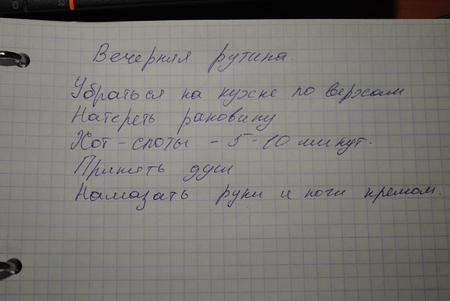 Вечерняя рутина
Убраться на кухне по верхам
Натереть раковину
Хот-споты - 5-10 минут.
Принять душ
Намазать руки и ноги кремом.